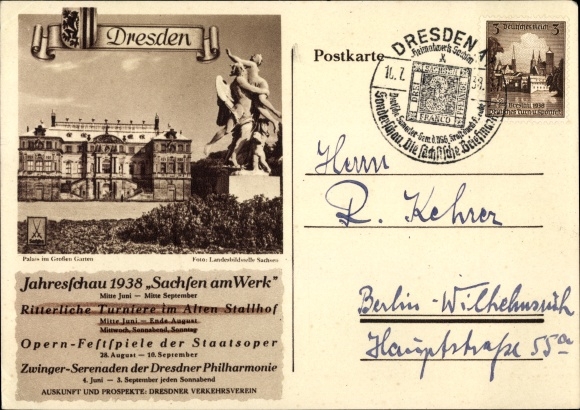 Dresden
Palais im Großen Garten
Foto: Landesbildstelle Sachsen
Jahresschau 1938 „Sachsen am Werk"
Mitte Juni — Mitte September
Ritterliche Turniere im Alten Stallhof
Mitte Juni — Ende August
Mittwoch, Sonnabend, Sonntag
Opern-Festspiele der Staatsoper
28. August — 10. September
Zwinger-Serenaden der Dresdner Philharmonie
4. Juni — 3. September jeden Sonnabend
AUSKUNFT UND PROSPEKTE: DRESDNER VERKEHRSVEREIN
Postkarte
DRESDEN
Heimatwerk Sachsen
SACHSEN
FRANCO
Sonderschau „Die sächsische Briefmarke"
3 Deutsches Reich 3
Breslau 1938
Herrn
R. Kehrer
Berlin-Wilhelmsruh
Hauptstraße 55a